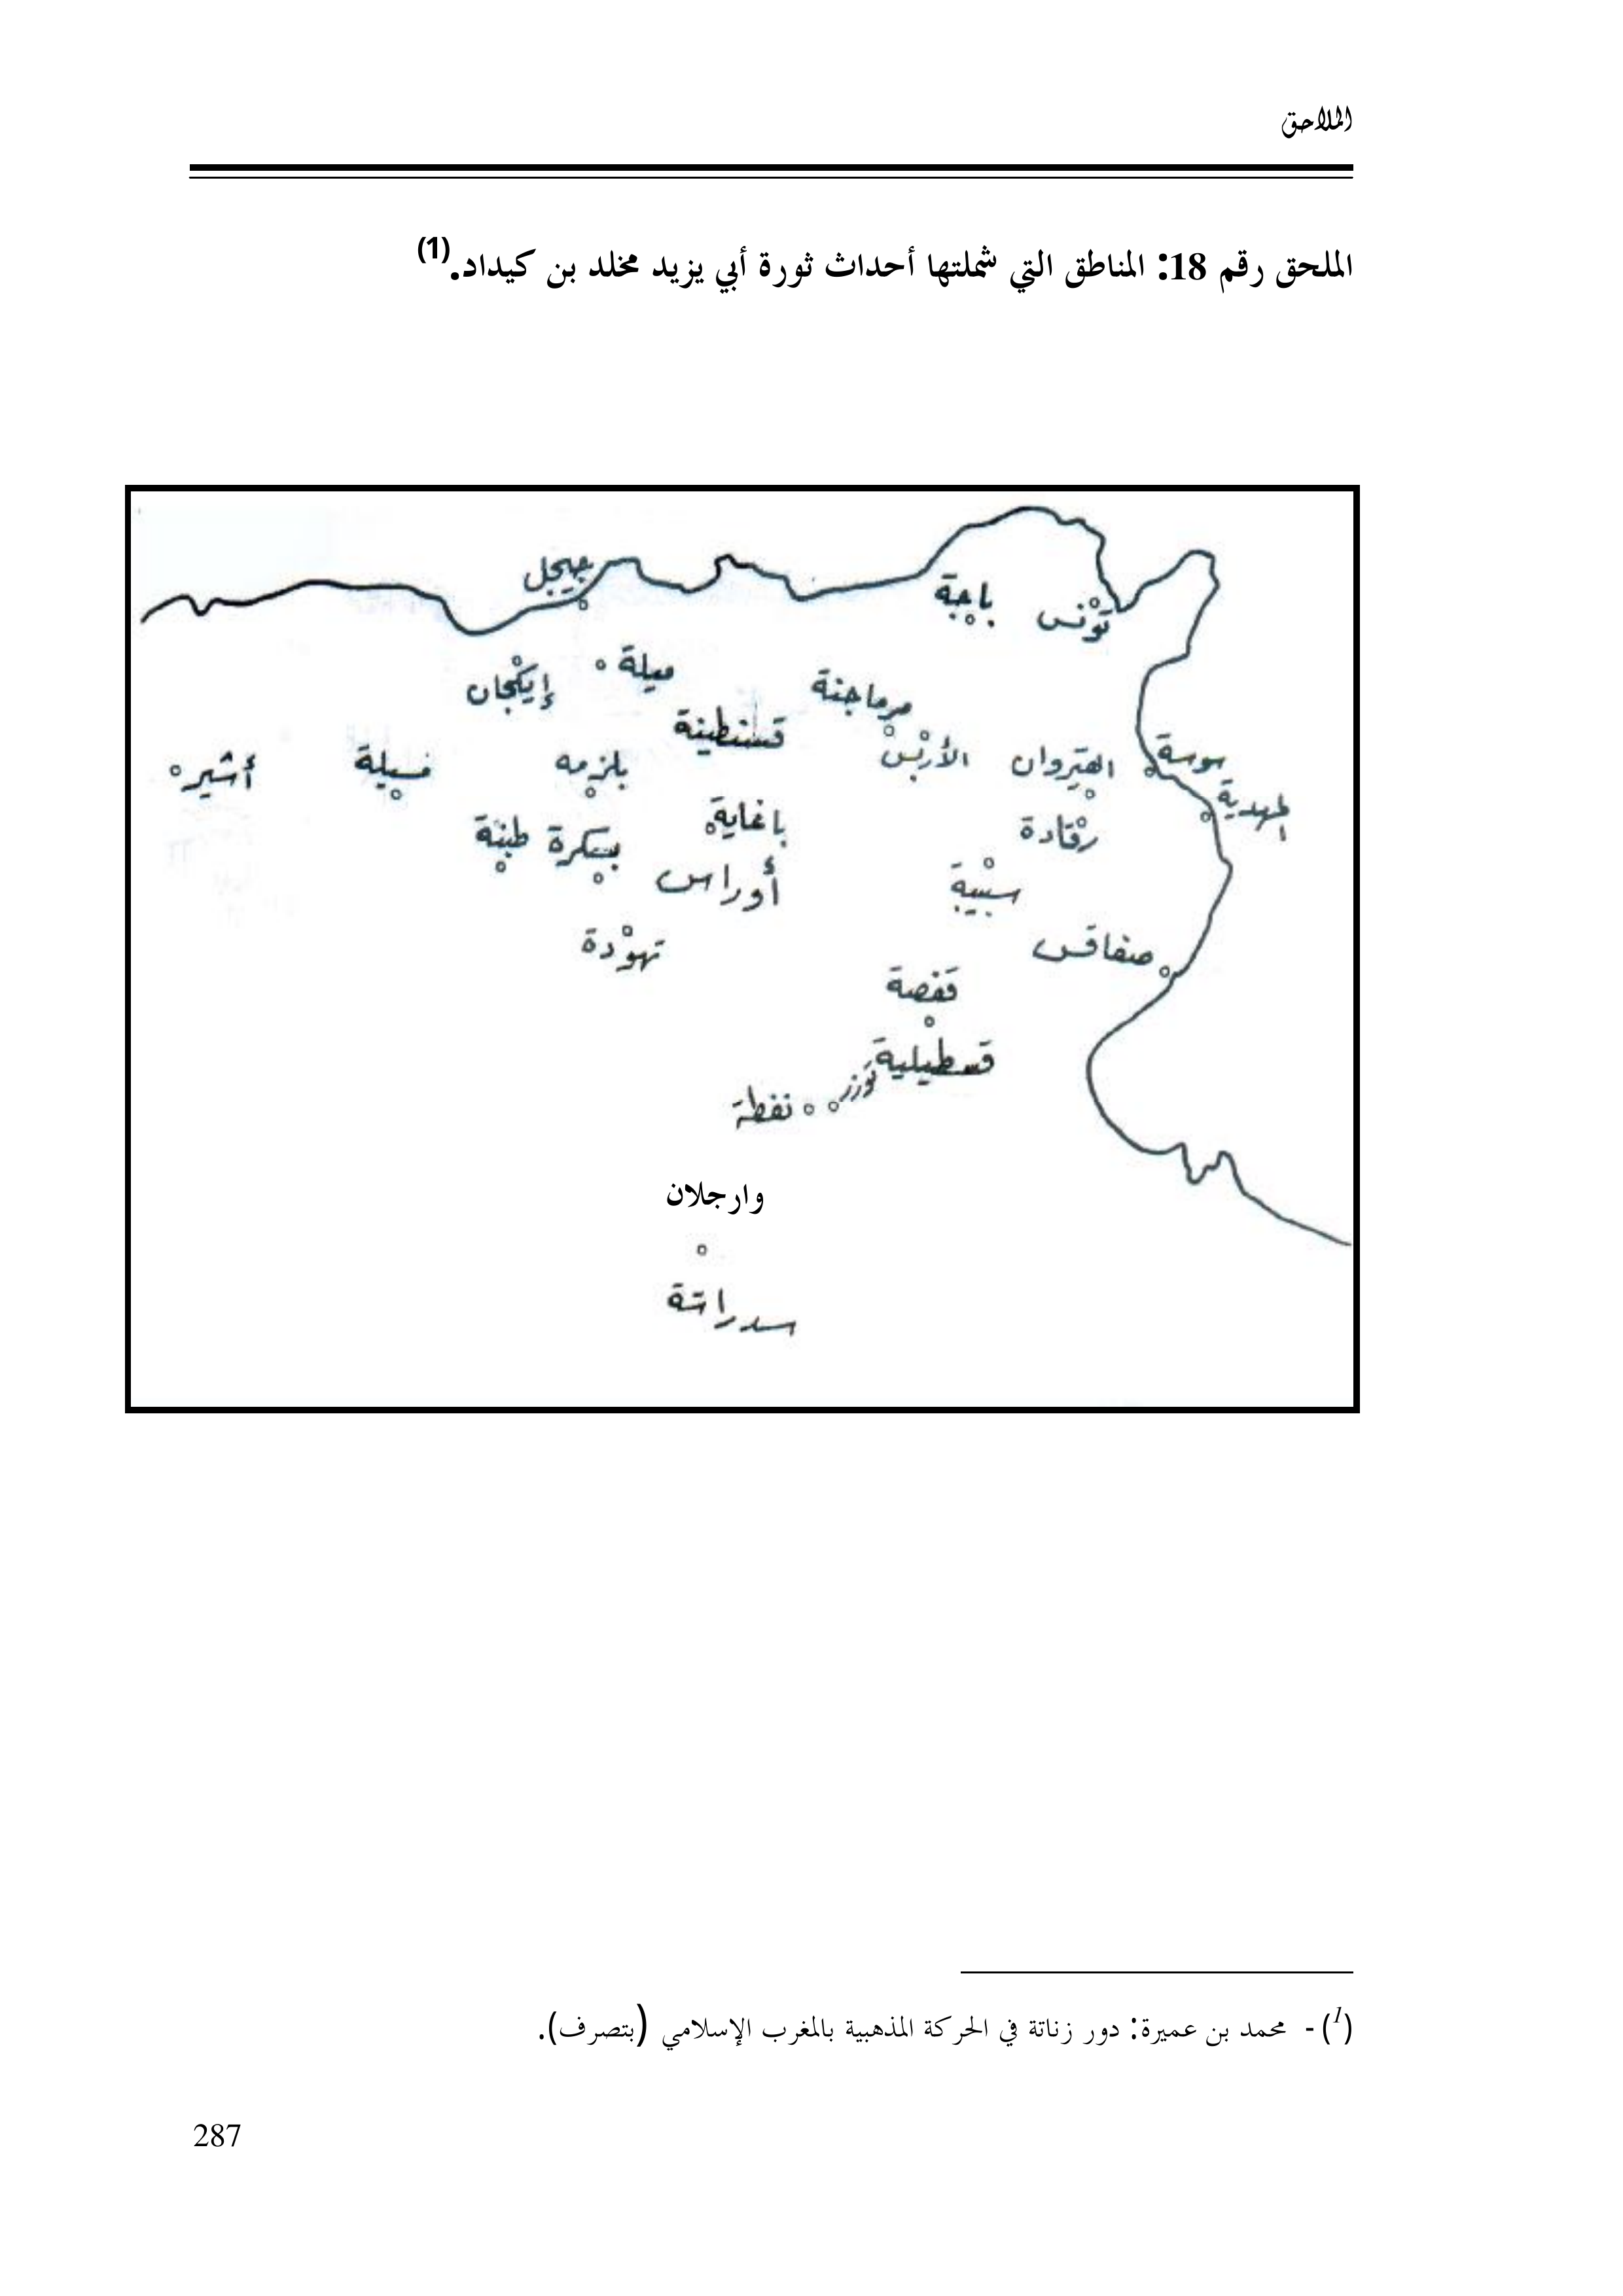 الملاحق
الملحق رقم 18: المناطق التي شملتها أحداث ثورة أبي يزيد مخلد بن كيداد.(1)
جيجل
باجة
تونس
ميلة
إيكجان
مرماجنة
قسنطينة
سوسة
القيروان
الأربس
بلزمه
مسيلة
أشير
المهدية
باغاية
رقادة
طبنة
بسكرة
أوراس
سبيبة
تهودة
صفاقس
قفصة
قسطيلية
توزر
نفطة
وارجلان
سدراتة
(1) - محمد بن عميرة: دور زناتة في الحركة المذهبية بالمغرب الإسلامي (بتصرف).
287